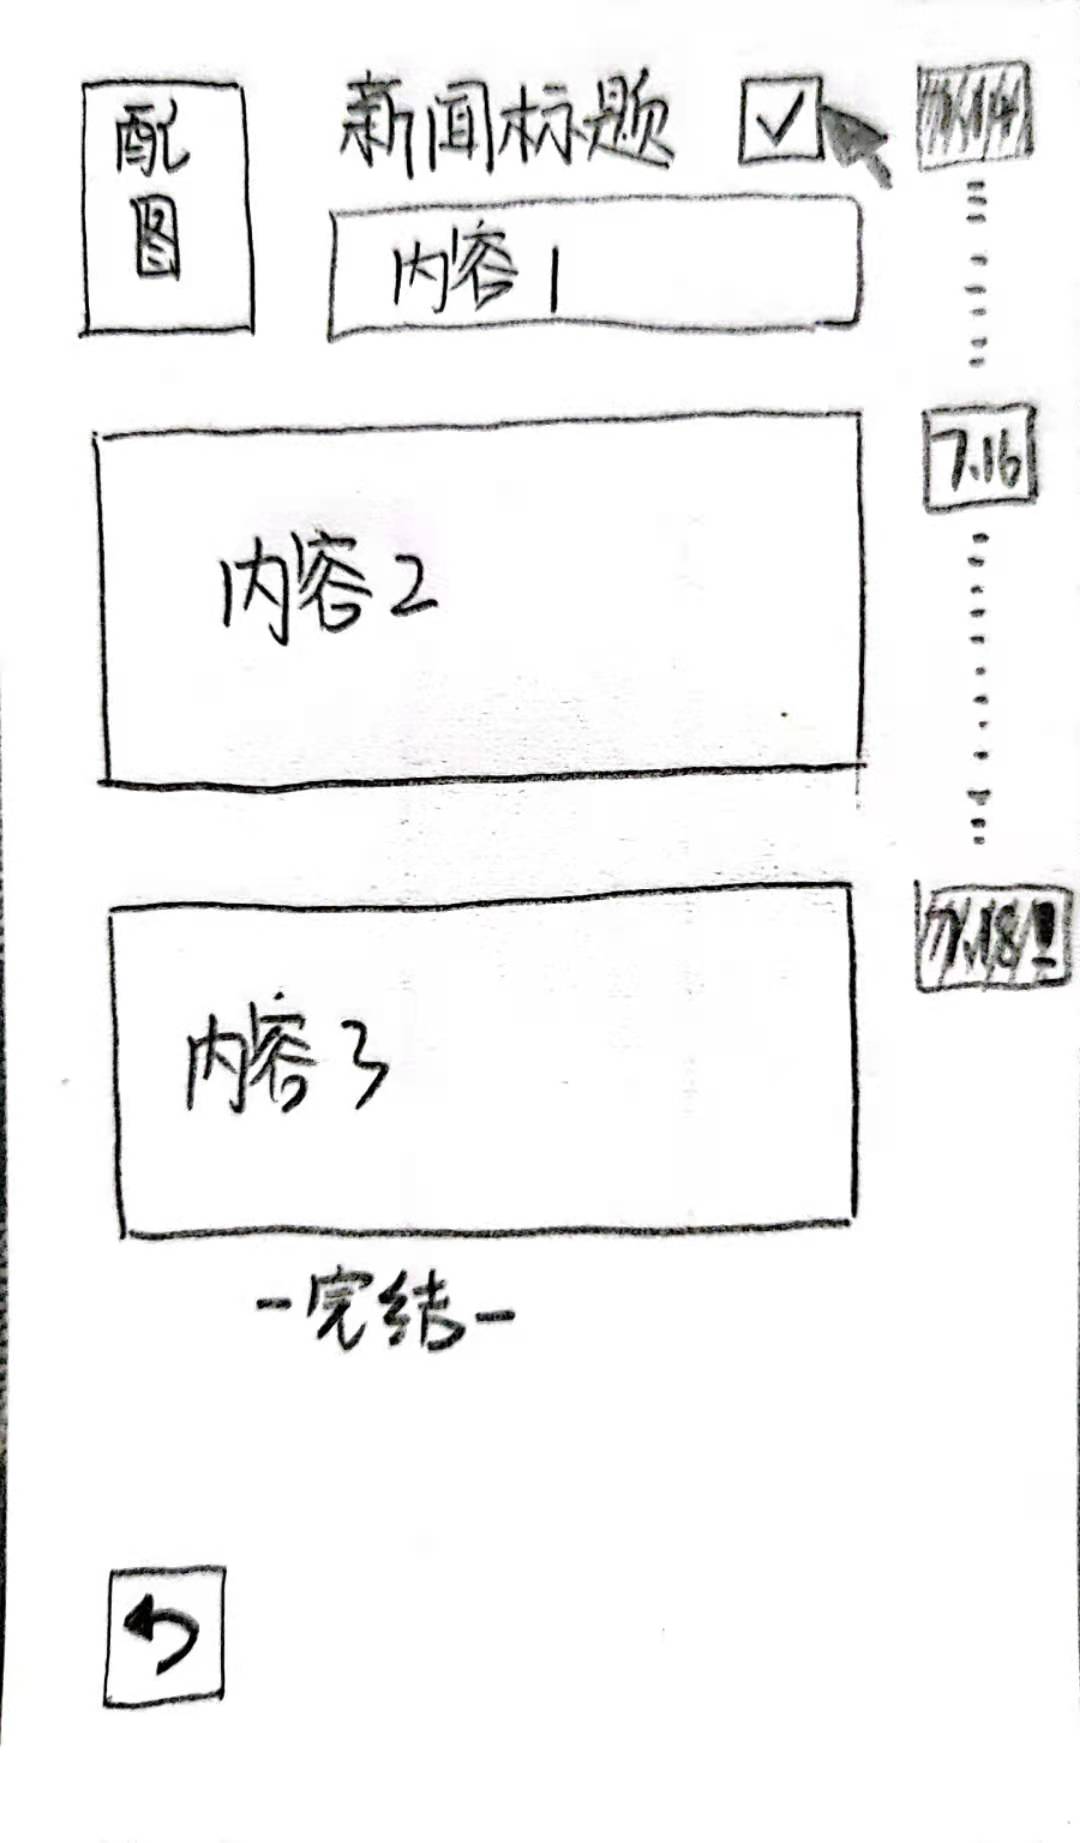 配
图
新闻标题
7.14
内容1
7.16
内容2
7.18!
内容3
-完结-